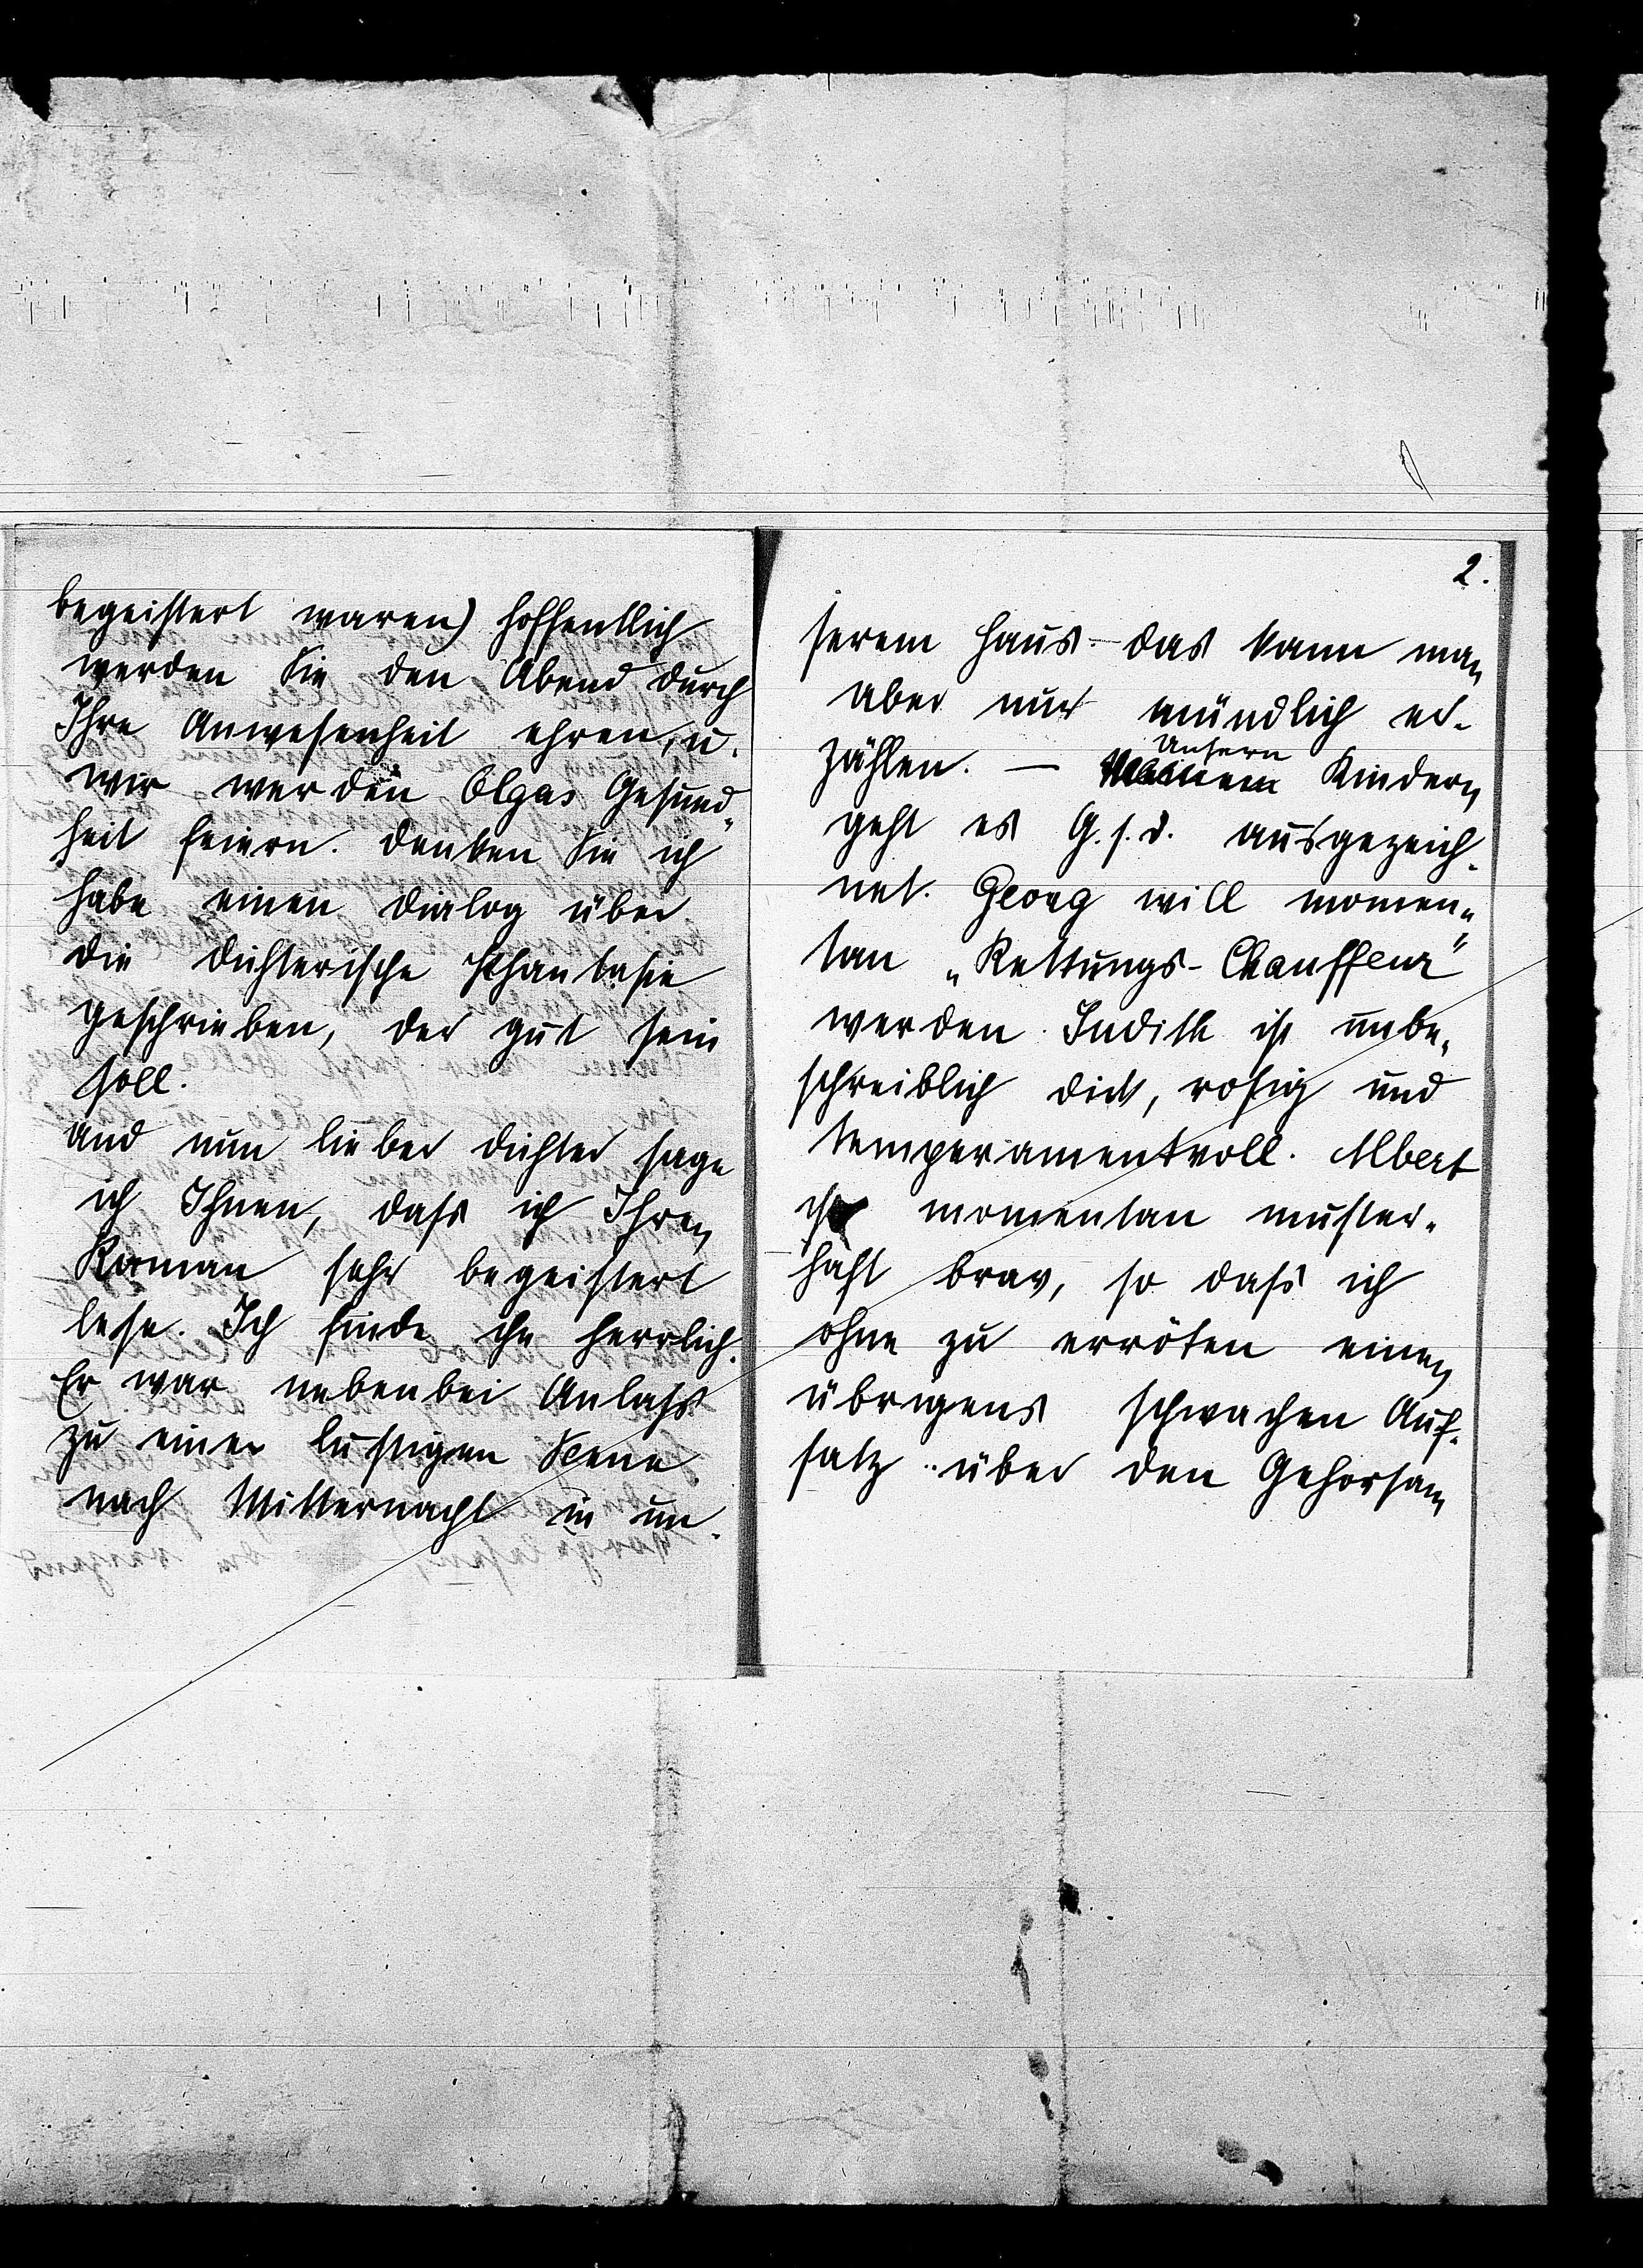 begeistert waren) hoffentlich
werden Sie den Abend durch
Ihre Anwesenheit ehren, u.
wir werden Olgas Gesund„
heit feiern. Denken Sie ich
habe einen Dialog über
die dichterische Phantasie
geschrieben, der gut sein
soll.
Und nun lieber Dichter sage
ich Ihnen, dass ich Ihren
Roman sehr begeistert
lese. Ich finde ihn herrlich.
Er war nebenbei Anlass
zu einer lustigen Scene
nach Mitternacht in un-
2.
serem Haus - das kann man
aber nur mündlich er-
zählen. — Unsern Kindern
geht es G. s. d. ausgezeich-
net. Georg will momen„
tan „Rettungs-Chauffeur“
werden. Judith ist unbe-
schreiblich dick, rosig und
temperamentvoll. Albert
ist momentan muster-
haft brav, so dass ich
ohne zu erröten einen
übrigens schwachen Auf-
satz über den Gehorsam